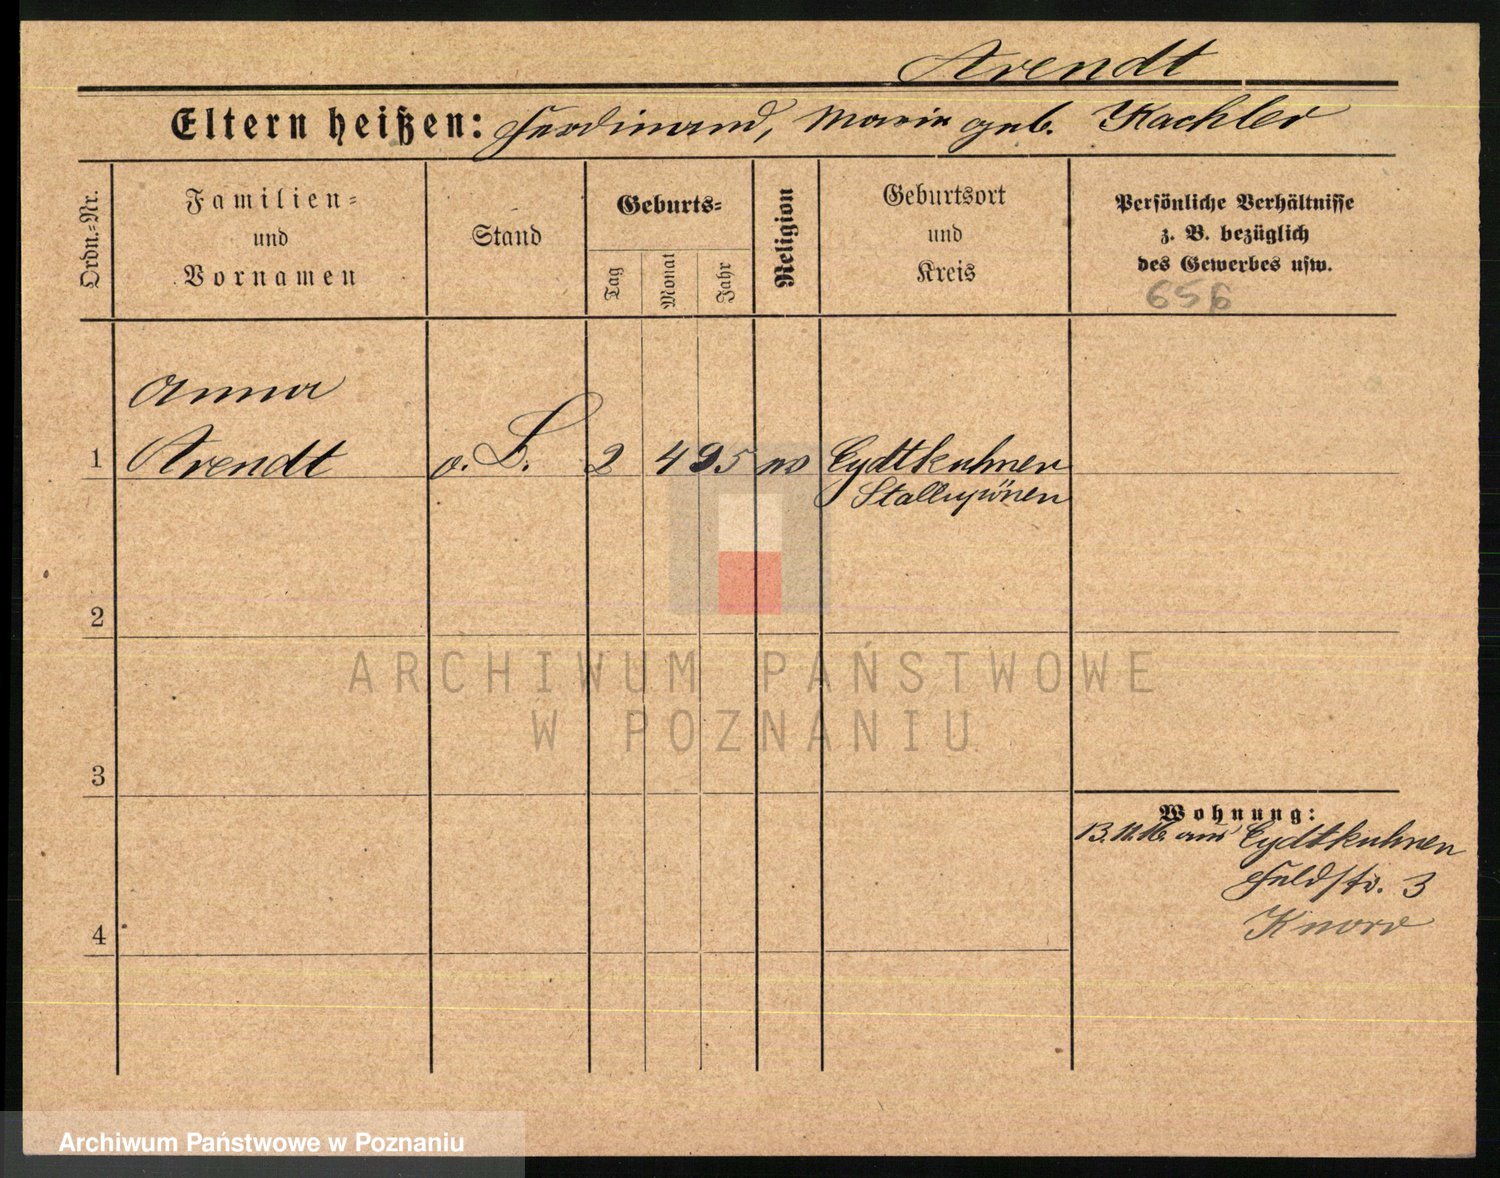 Arendt
Eltern heißen: Ferdinand, Marie geb. Kachler
Ordn.=Nr.
Familien=
und
Vornamen
Stand
Geburts=
Tag
Monat
Jahr
Religion
Geburtsort
und
Kreis
Persönliche Verhältnisse
z. B. bezüglich
des Gewerbes usw.
656
Anna
1 Arendt o. L. 2 4 95 Eydtkuhnen
Stallupönen
2
ARCHIWUM PAŃSTWOWE
W POZNANIU
3
Wohnung:
aus Eydtkuhnen
Feldstr. 3
Knorr
4
Archiwum Państwowe w Poznaniu